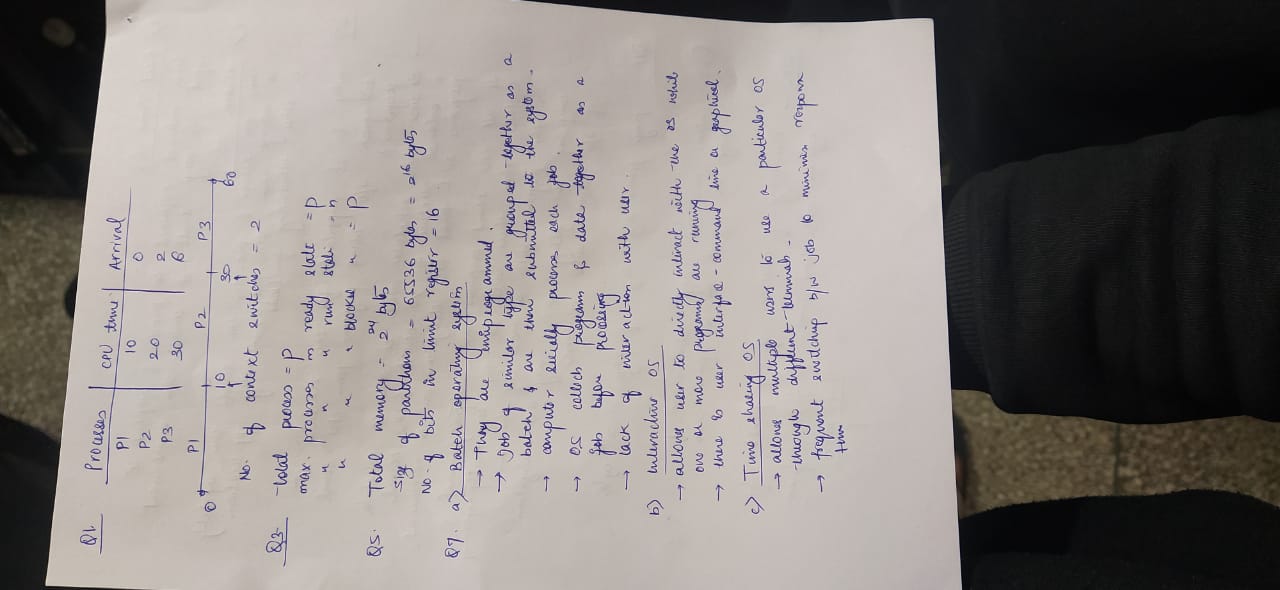 Q1. Processes | CPU time | Arrival
P1 10 0
P2 20 2
P3 30 6
P1 P2 P3
0 10 30 60
No. of context switches = 2
Q3. Total process = p
max. processes in ready state = p
" " " run state = n
" " " blocked " = p
Q5. Total memory = 2^24 bytes
Size of partitions = 65536 bytes = 2^16 bytes
No. of bits in limit register = 16
Q7. a) Batch operating system
→ They are uniprogrammed.
→ Job of similar type are grouped together as a
batch & are then submitted to the system.
→ computer serially processes each job.
→ OS collects programs & data together as a
job before processing
→ lack of interaction with user.
b) Interactive OS
→ allows user to directly interact with the OS while
one or more programs are running
→ there is user interface - command line or graphical.
c) Time sharing OS
→ allows multiple users to use a particular OS
through different terminals.
→ frequent switching b/w job to minimize response
time